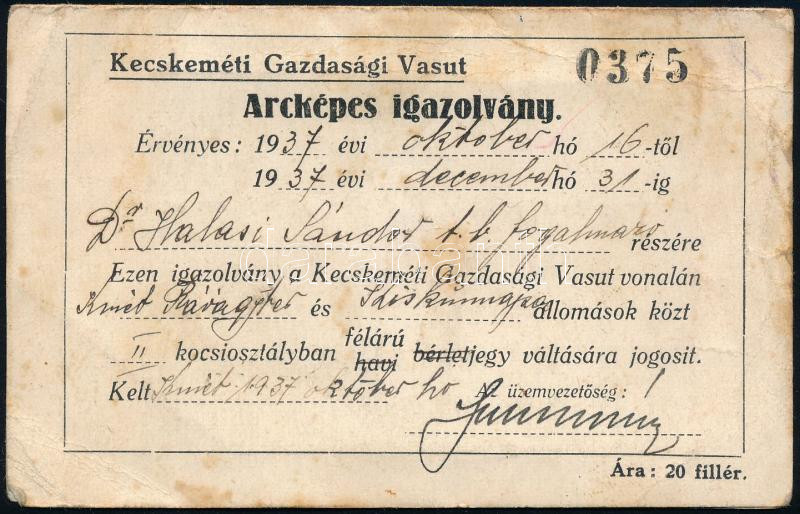 Kecskeméti Gazdasági Vasut 0375
Arcképes igazolvány.
Érvényes: 1937 évi október hó 16-től
1937 évi december hó 31-ig
Dr Halasi Sándor t. b. fogalmazó részére
Ezen igazolvány a Kecskeméti Gazdasági Vasut vonalán
Kmét Rávágytér és állomások közt
II kocsiosztályban félárú havi bérletjegy váltására jogosit.
Kelt Kmét 1937 október hó Az üzemvezetőség:
Ára: 20 fillér.